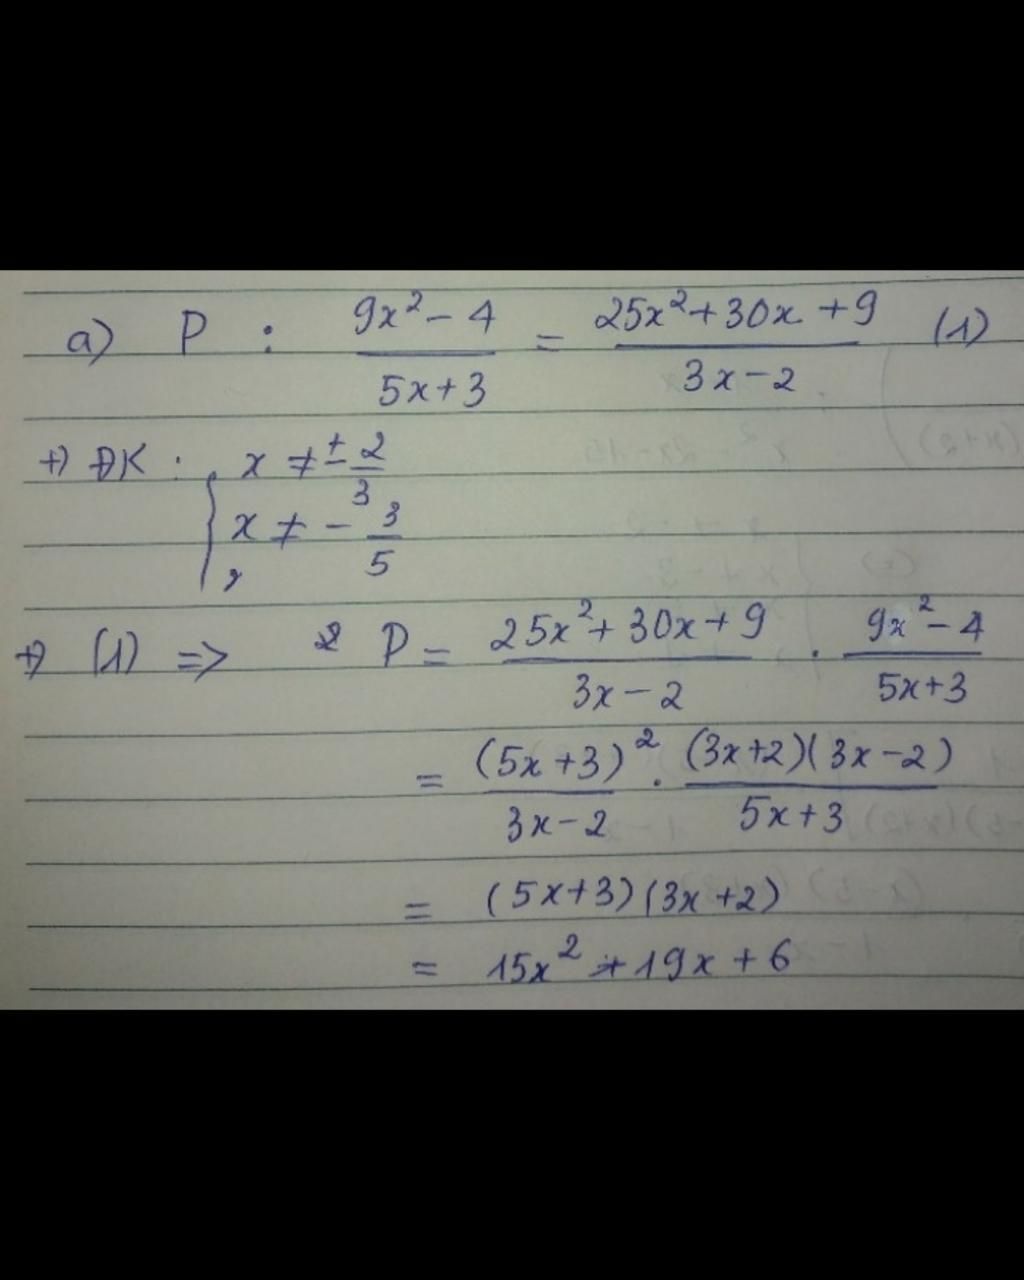 a) P : \frac{9x^2 - 4}{5x + 3} = \frac{25x^2 + 30x + 9}{3x - 2} (1)
+) ĐK : { x ≠ ± \frac{2}{3}
x ≠ - \frac{3}{5}
+) (1) => P = \frac{25x^2 + 30x + 9}{3x - 2} . \frac{9x^2 - 4}{5x + 3}
= \frac{(5x + 3)^2}{3x - 2} . \frac{(3x + 2)(3x - 2)}{5x + 3}
= (5x + 3)(3x + 2)
= 15x^2 + 19x + 6